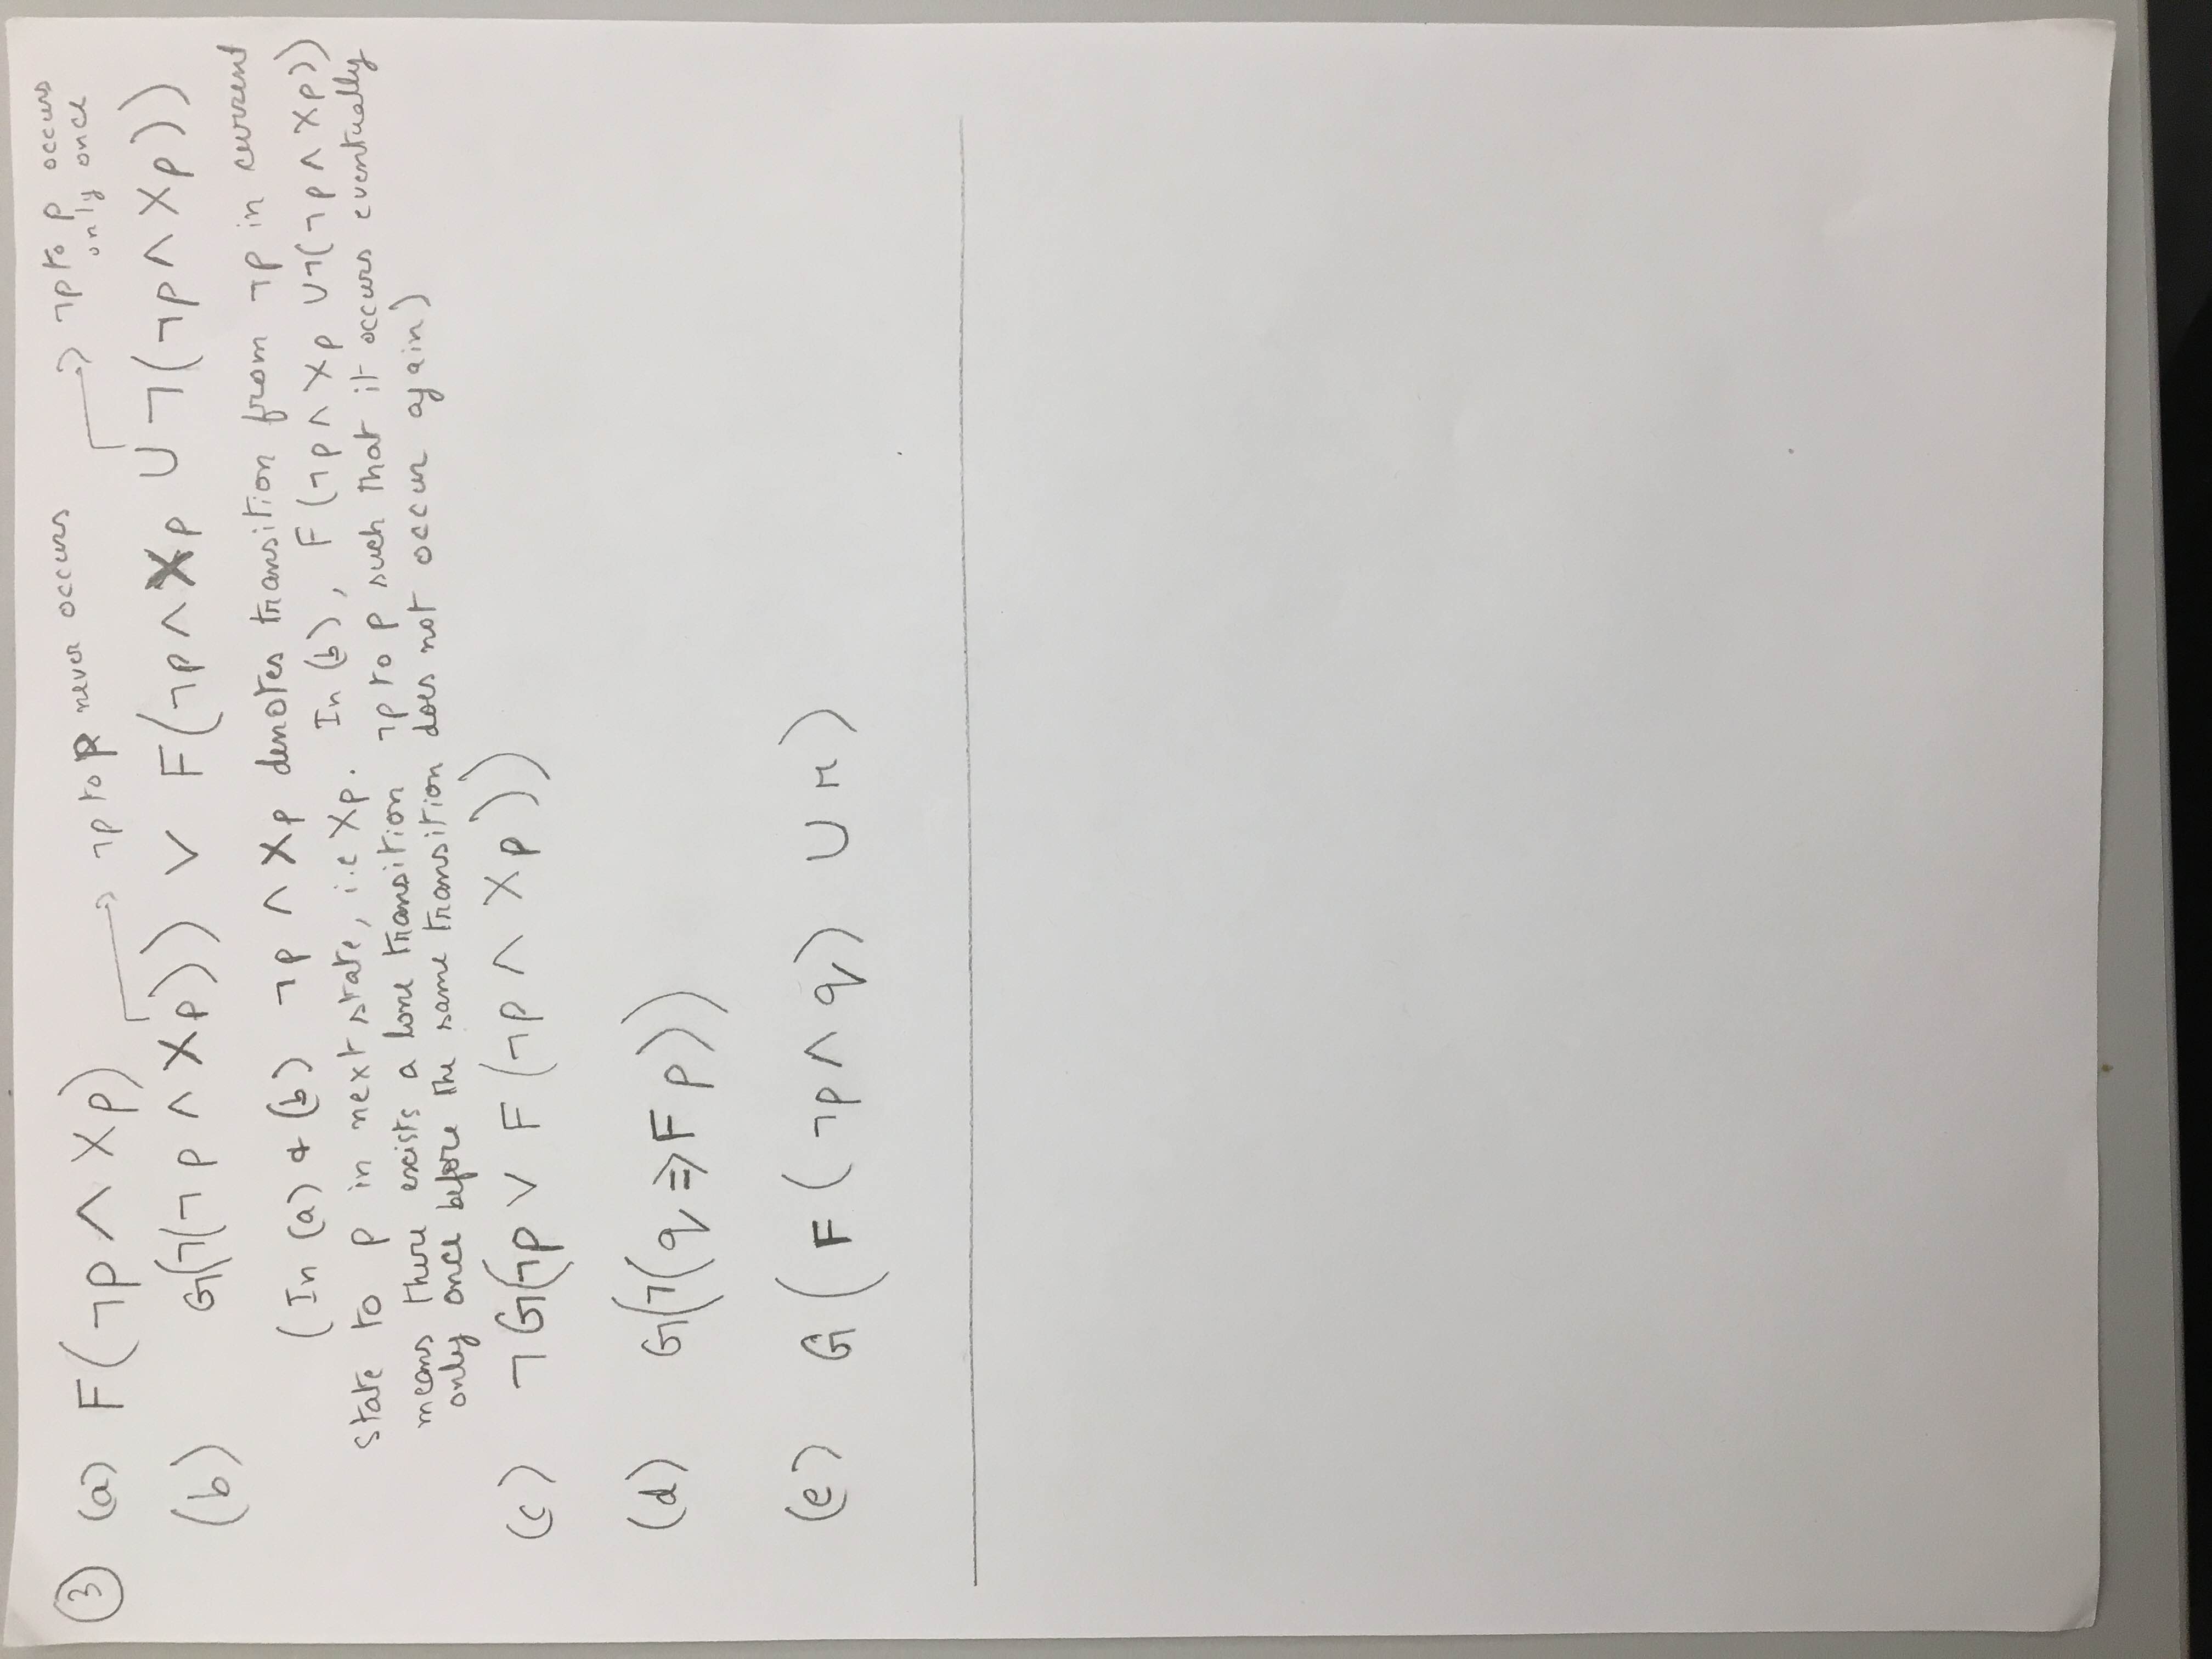 ③ (a) F(¬p ∧ Xp)
→ ¬p to p never occurs
→ ¬p to p occurs
only once
(b) G(¬(¬p ∧ Xp)) ∨ F(¬p ∧ Xp U ¬(¬p ∧ Xp))
(In (a) & (b) ¬p ∧ Xp denotes transition from ¬p in current
state to p in next state, i.e Xp. In (b), F(¬p ∧ Xp U ¬(¬p ∧ Xp))
means there exists a lone transition ¬p to p such that it occurs eventually
only once before the same transition does not occur again)
(c) ¬G(¬p ∨ F(¬p ∧ Xp))
(d) G(¬(q ⇒ F p))
(e) G(F(¬p ∧ q) U r)